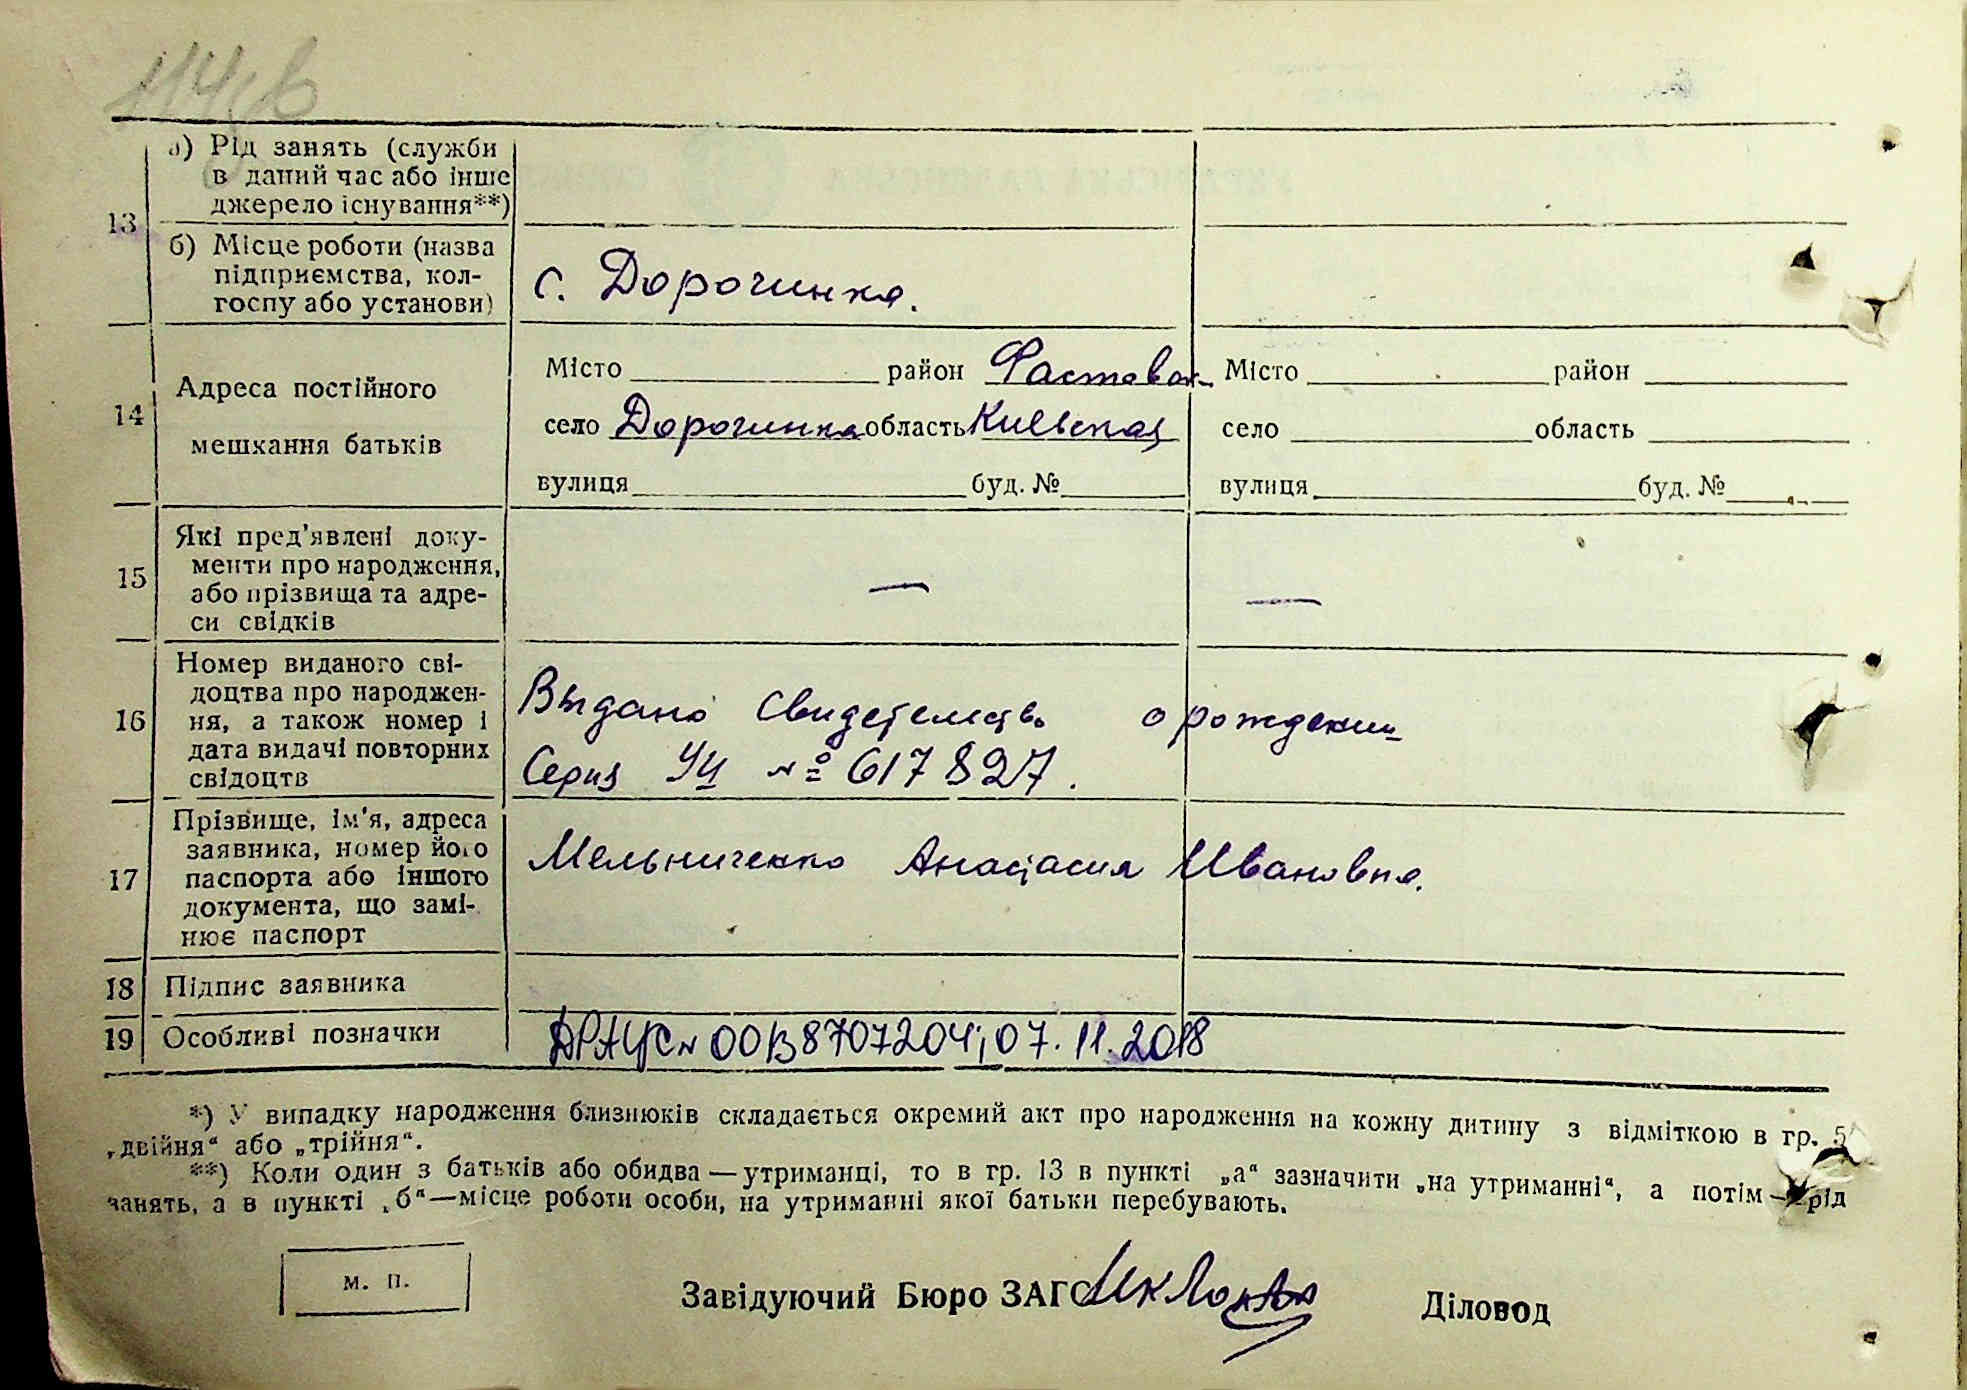 114зв
13
а) Рід занять (служби
в даний час або інше
джерело існування**)
б) Місце роботи (назва
підприємства, кол-
госпу або установи)
с. Дорогинка.
14
Адреса постійного
мешкання батьків
Місто район Фастовск
село Дорогинка область Киевская
вулиця буд. №
Місто район
село область
вулиця буд. №
15
Які пред'явлені доку-
менти про народження,
або прізвища та адре-
си свідків
— —
16
Номер виданого сві-
доцтва про народжен-
ня, а також номер і
дата видачі повторних
свідоцтв
Выдано свидетельство о рождении
Серия УЦ № 617827.
17
Прізвище, ім'я, адреса
заявника, номер його
паспорта або іншого
документа, що замі-
нює паспорт
Мельниченко Анастасия Ивановна.
18 Підпис заявника
19 Особливі позначки
ДРАЦС № 00138707204; 07.11.2018
*) У випадку народження близнюків складається окремий акт про народження на кожну дитину з відміткою в гр. 5
„двійня“ або „трійня“.
**) Коли один з батьків або обидва—утриманці, то в гр. 13 в пункті „а“ зазначити „на утриманні“, а потім—рід
занять, а в пункті „б“—місце роботи особи, на утриманні якої батьки перебувають.
м. п.
Завідуючий Бюро ЗАГС
Діловод